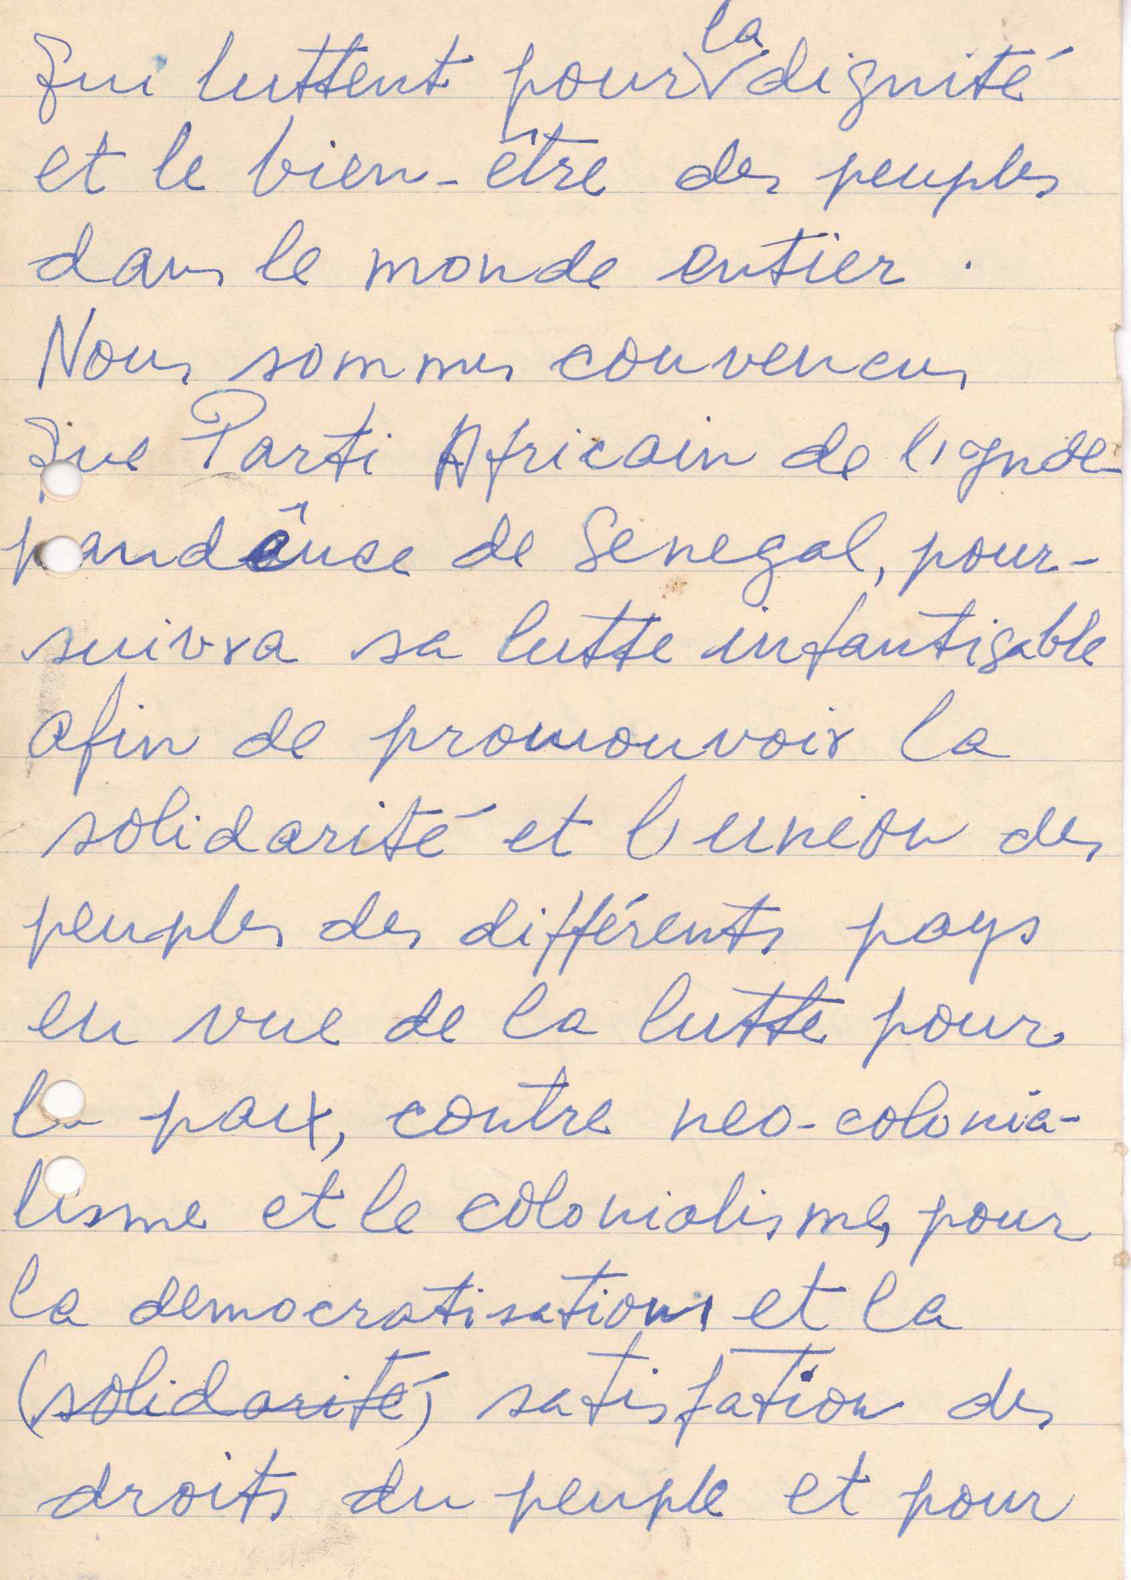 qui luttent pour la dignité
et le bien-être des peuples
dans le monde entier.
Nous sommes convencus
que Parti Africain de l'Inde-
pandênce de Senegal, pour-
suivra sa lutte infantigable
afin de promouvoir la
solidarité et l'union des
peuples des différents pays
en vue de la lutte pour
la paix, contre neo-colonia-
lisme et le colonialisme, pour
la democratisation et la
(solidarité) satisfation des
droits du peuple et pour